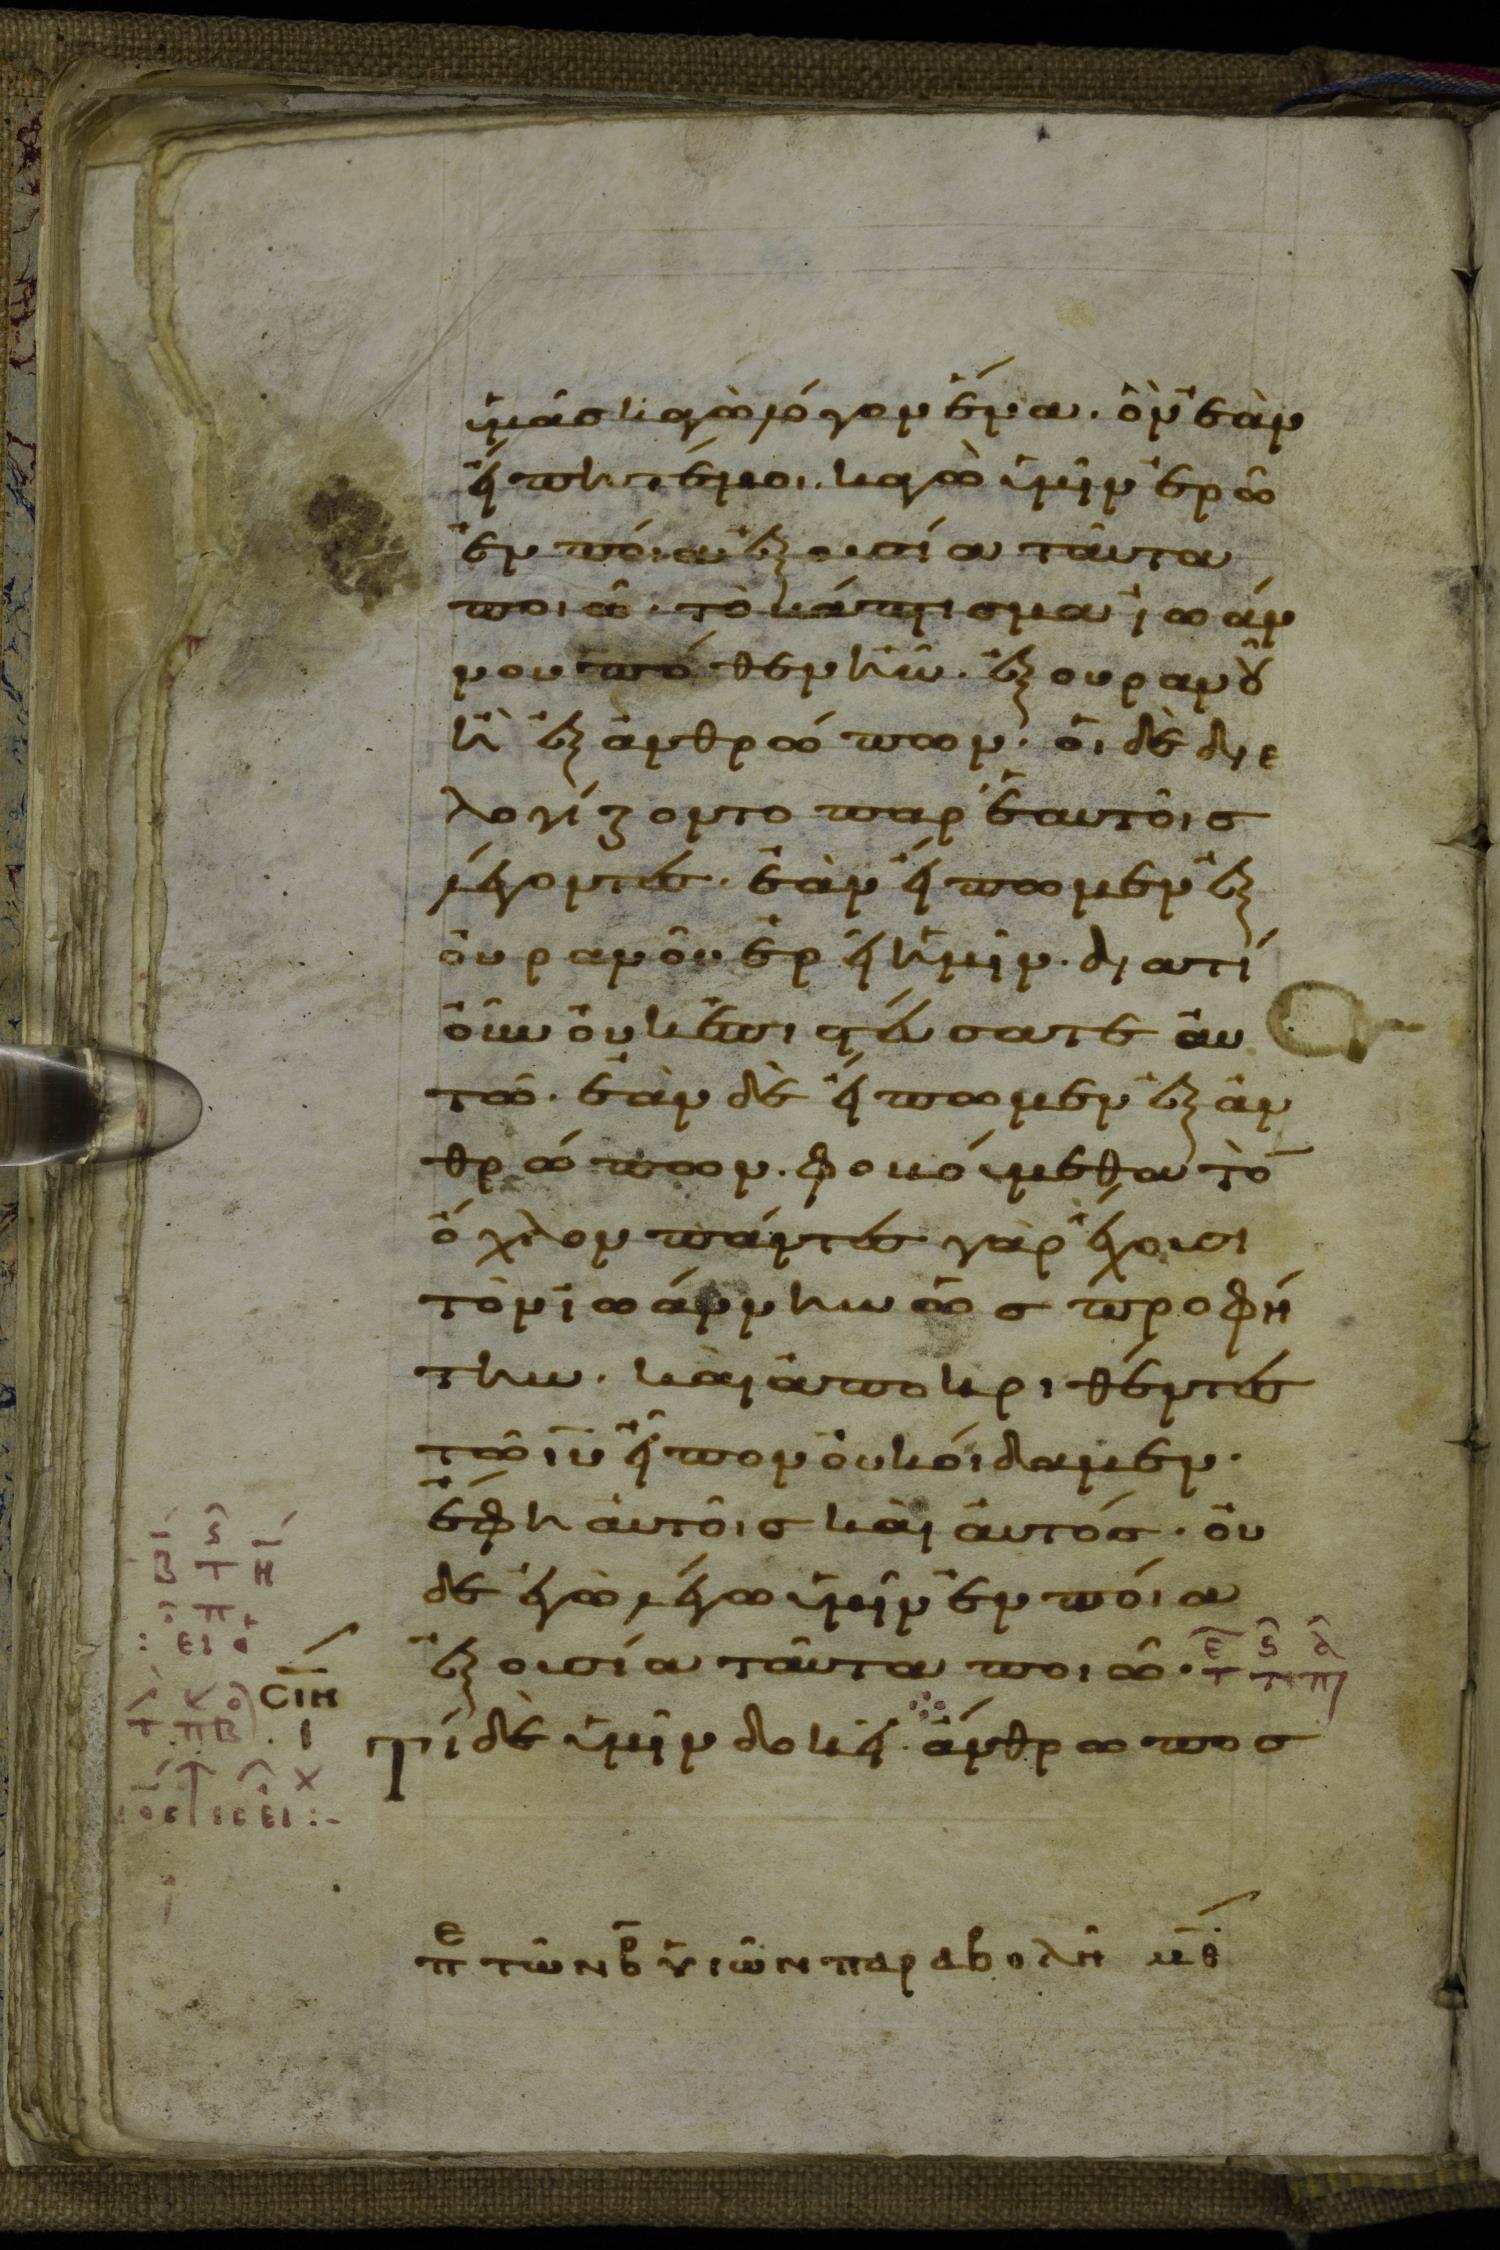 ὑμᾶς κἀγὼ λόγον ἕνα. ὃν ἐὰν
εἴπητέ μοι. κἀγὼ ὑμῖν ἐρῶ
ἐν ποία ἐξουσία ταῦτα
ποιῶ. τὸ βάπτισμα ἰωάν
νου πόθεν ἦν. ἐξ ουρανοῦ
ἢ ἐξ ἀνθρώπων. οἱ δὲ διε
λογίζοντο παρ' ἑαυτοῖς
λέγοντες. ἐὰν εἴπωμεν ἐξ
οὐρανοῦ ἐρεῖ ἡμῖν. διατί
οὖν οὐκ ἐπιστεύσατε αὐ
τῶ. ἐὰν δὲ εἴπωμεν ἐξ ἀν
θρώπων. φοβούμεθα τὸ
ὄχλον πάντες γὰρ ἔχουσι
τὸν ἰωάννην ὡς προφή
την. καὶ ἀποκριθέντες
τῶ ιῦ εἶπον οὐκ οἴδαμεν.
ἔφη αὐτοῖς καὶ αὐτός. οὐ
δὲ ἐγὼ λέγω ὑμῖν ἐν ποία
ἐξουσία ταῦτα ποιῶ.
σιη
ι
Τί δὲ ὑμῖν δοκεῖ. ἄνθρωπος
πε τῶν β ὑιῶν παραβολή